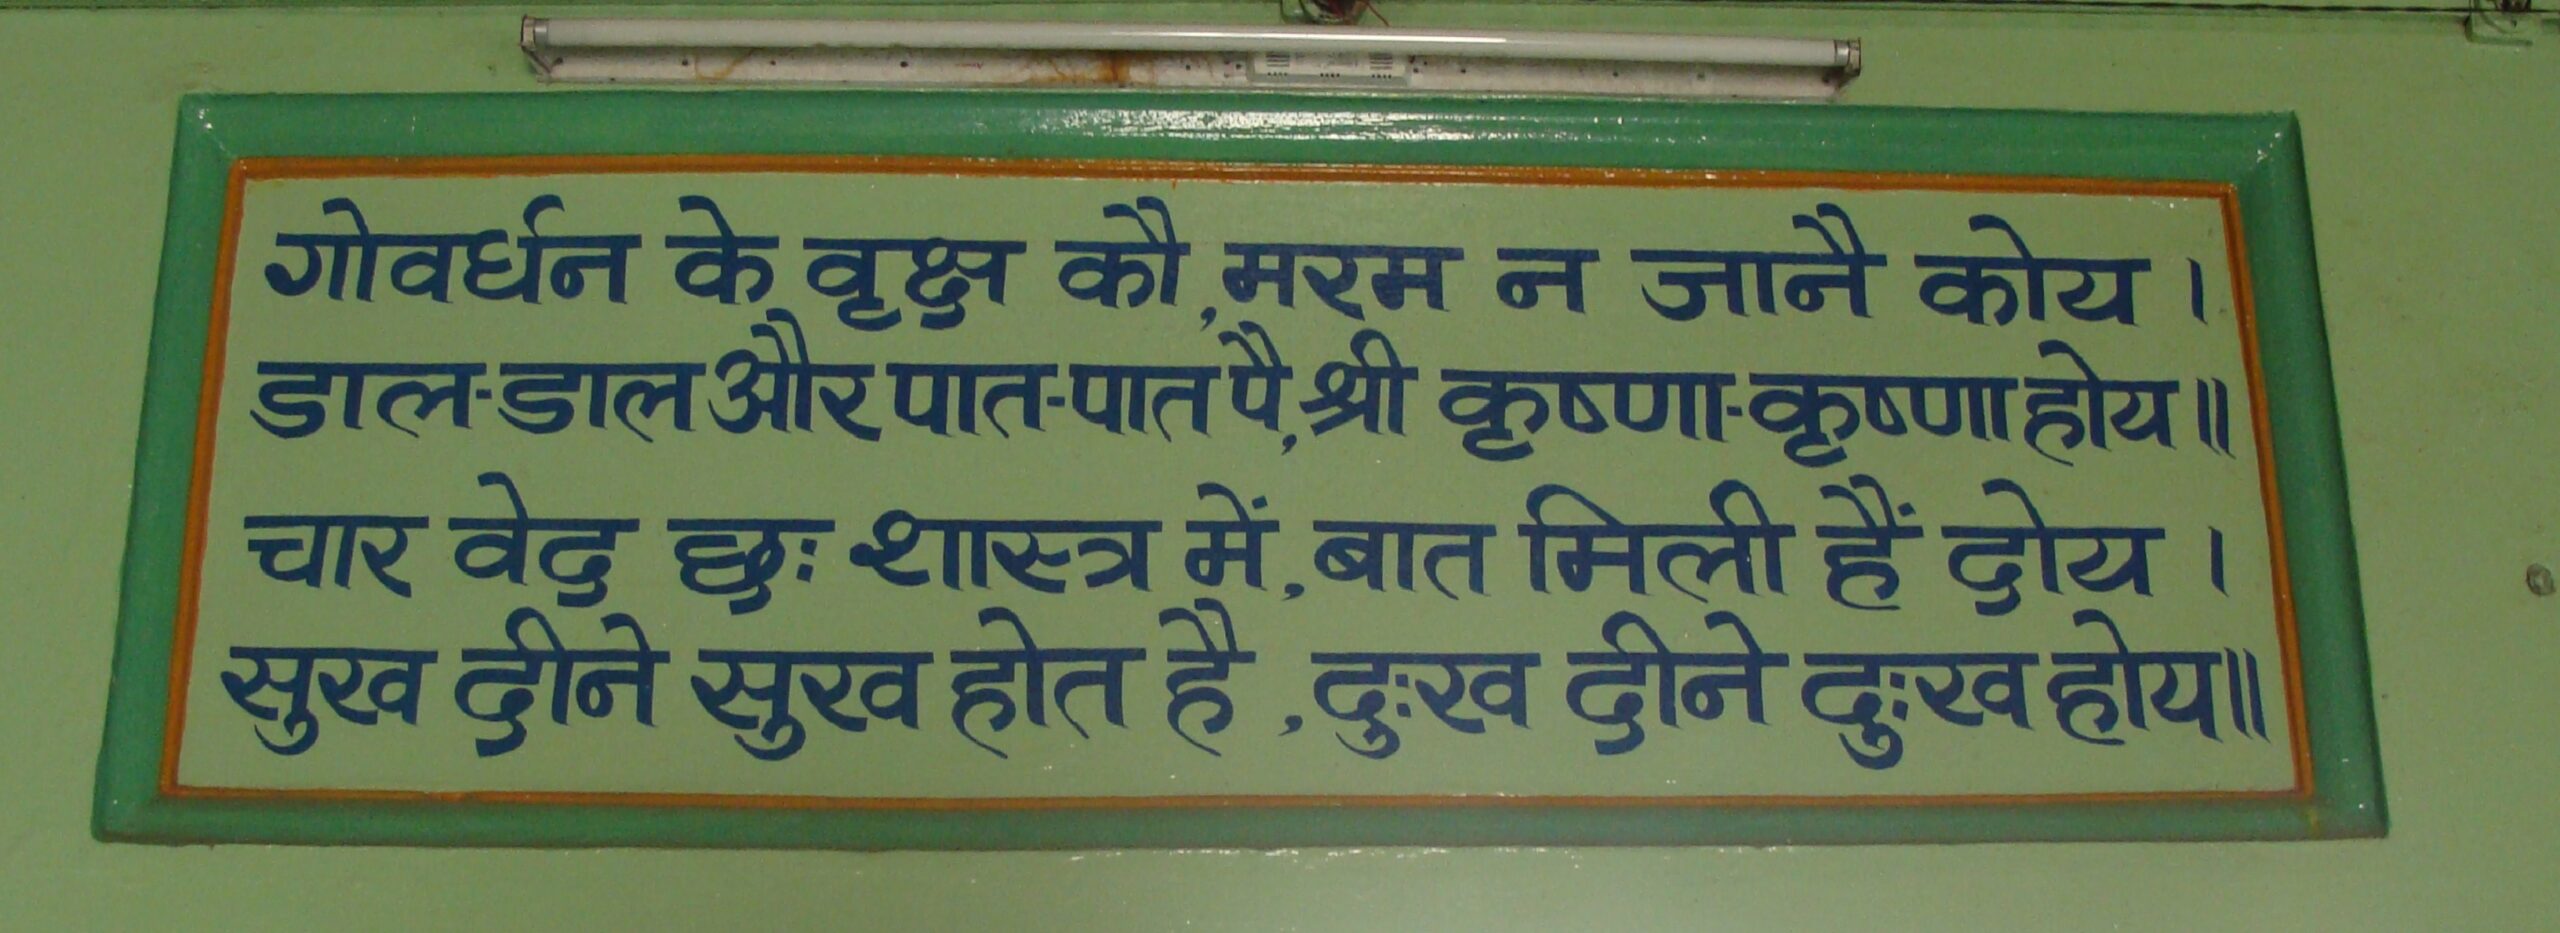 गोवर्धन के वृक्ष कौ, मरम न जानै कोय ।
डाल-डाल और पात-पात पै, श्री कृष्णा-कृष्णा होय ॥
चार वेद छः शास्त्र में, बात मिली हैं दोय ।
सुख दीने सुख होत है, दुःख दीने दुःख होय ॥